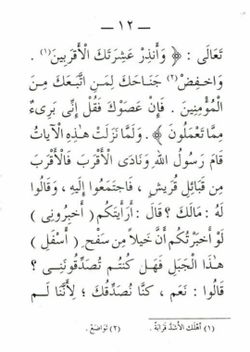 — ١٢ —
تَعَالَى : ﴿ وَأَنذِرْ عَشِيرَتَكَ الْأَقْرَبِينَ (١) .
وَاخْفِضْ (٢) جَنَاحَكَ لِمَنِ اتَّبَعَكَ مِنَ
الْمُؤْمِنِينَ . فَإِنْ عَصَوْكَ فَقُلْ إِنِّي بَرِيءٌ
مِمَّا تَعْمَلُونَ ﴾ . وَلَمَّا نَزَلَتْ هٰذِهِ الْآيَاتُ
قَامَ رَسُولُ اللهِ وَنَادَى الْأَقْرَبَ فَالْأَقْرَبَ
مِنْ قَبَائِلِ قُرَيْشٍ ، فَاجْتَمَعُوا إِلَيْهِ ، وَقَالُوا
لَهُ : مَالَكَ ؟ قَالَ : أَرَأَيْتَكُمْ ( أَخْبِرُونِي )
لَوْ أَخْبَرْتُكُمْ أَنَّ خَيْلًا مِنْ سَفْحِ ( أَسْفَلِ )
هٰذَا الْجَبَلِ فَهَلْ كُنتُمْ تُصَدِّقُونَنِي ؟
قَالُوا : نَعَم ، كُنَّا نُصَدِّقُكَ ؛ لِأَنَّنَا لَمْ
(١) أَهْلَكَ الْأَشَدَّ قَرَابَةً . (٢) تَوَاضَعْ .